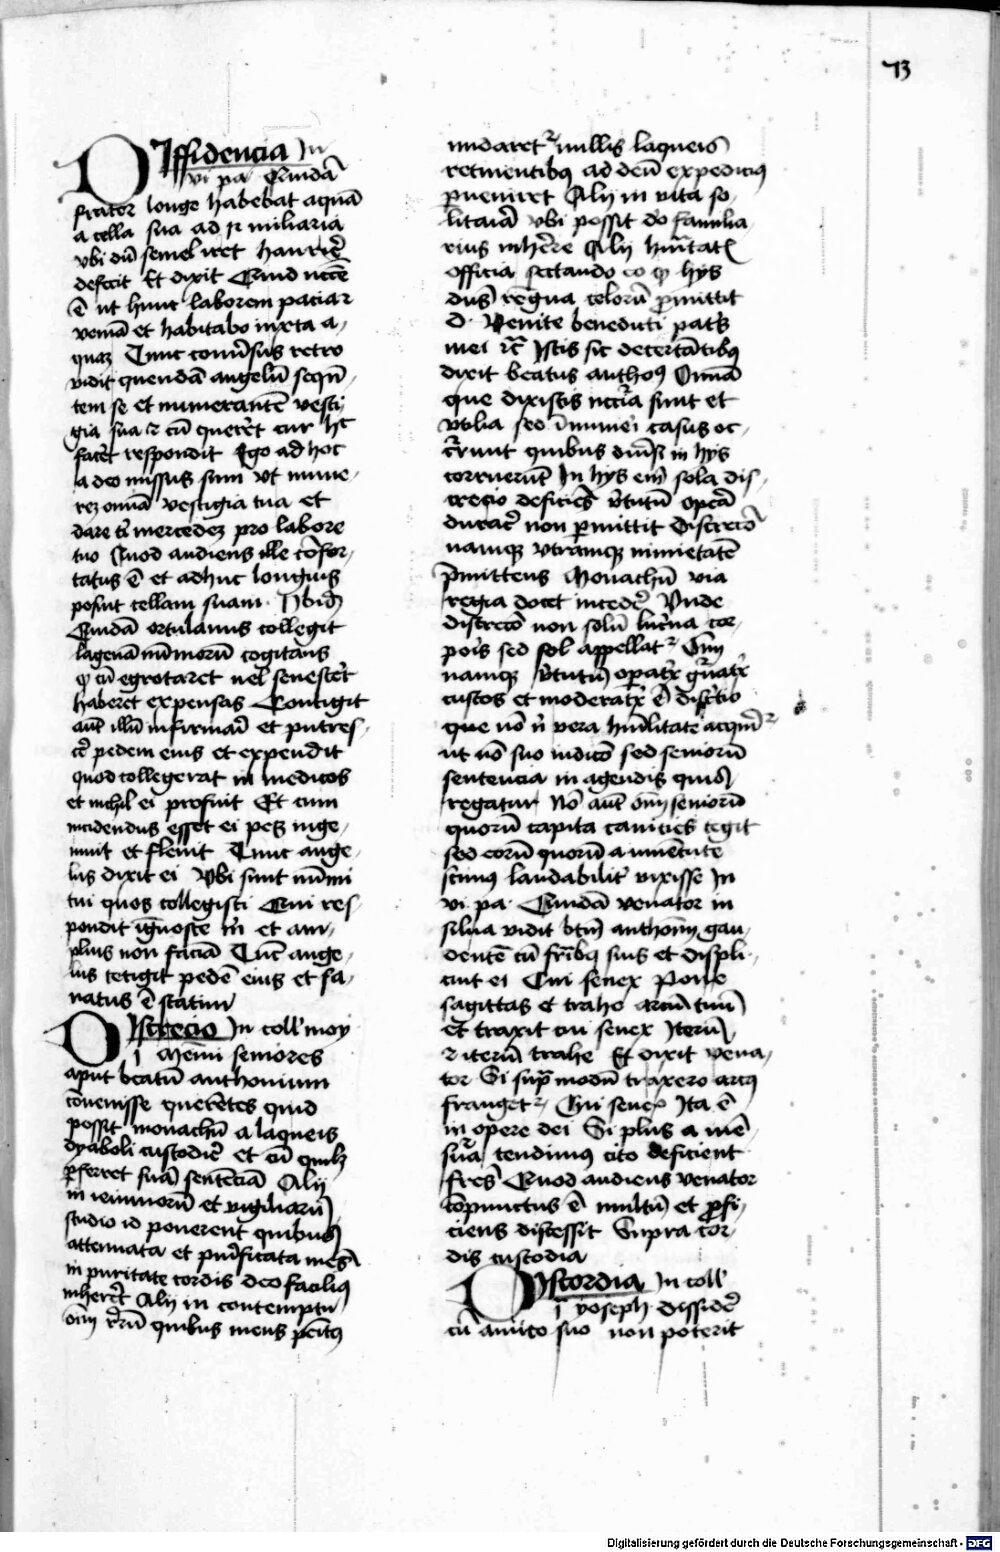 73
DIffidencia In
vi pa Quidā
frater longe habebat aquā
a cella sua ad ij miliaria
vbi dū semel iret haurir̄e
defecit Et dixit Quid necē
ē ut hunc laborem paciar
veniā et habitabo iuxta a-
quaȝ Tunc conv̄sus retro
vidit quendā angelū sequē-
tem se et numerantē vesti-
gia sua ⁊ cū quer̄et cur hͨ
facet respondit Ego ad hoc
a deo missus sum vt nume-
reȝ omīa vestigia tua et
dare ti mercedeȝ pro labore
tuo Quod audiens ille cōfor-
tatus ē et adhuc longius
posuit cellam suam. Ibid
Quidā ortulanus collegit
lagenā nūmorū cogitans
ꝙ cū egrotaret uel senescet
haberet expensas Contigit
aūt illū infirmari et putres-
cer̄ pedem eius et expendit
quod collegerat in medicos
et nichil ei profuit Et cum
incidendus esset ei pes inge-
muit et fleuit Tunc ange-
lus dixit ei Vbi sunt nūmi
tui quos collegisti Qui res-
pondit ignosce m̄ et am-
plius non faciā Tūc ange-
lus tetigit pedē eius et sa-
natus ē statim
DIscrecio In coll' moy
i Menii seniores
aput beatū anthonium
cōuenisse querētes quid
possit monachū a laqueis
dyaboli custodire et cū quilꝫ
ꝓferret suā sentēciā Alij
in ieiuniorū et vigiliarū
studio id ponerent quibus
attenuata et purificata mens
in puritate cordis deo facilius
inheret Alij in contemptu
oīm r̄erū quibus mens penitꝰ
nudaretᷣ nullis laqueis
retinentibus ad deū expeditius
ꝑueniret Alij in vita so-
litaria vbi possit deo familia-
rius inherere Alij humaītatis
officia sectando eo ꝙ hys
dūs regna celorū ꝓmittit
d. Venite benedicti pat̄s
mei ⁊c Istis sic decertātibus
dixit beatus anthoꝰ Omīa
que dixistis necc̄ia sunt et
vtilia sed inumei casus oc-
crunt quibus diūsi in hys
corruerūt In hys eni sola dis-
crecio deficiēs v̄tutū opa
durare non ꝑmittit Discrecio
namqȝ vtramqȝ nimietatē
ꝓmittens Monachū via
regia docet incedere Vnde
discrecio non solū lucerna cor-
poris sed sol appellatᷣ Omīū
namqȝ v̄tutū opatrix gnatrix
custos et moderatrix ē discretio
que nō nisi vera humilitate acquiritᷣ
ut nō suo iudicio sed seniorū
sentencia in agendis quis
regatur Nō aūt oīm seniorū
quorū capita canities tegit
sed eorū quorū a iuuētute
scimus laudabilit' vixisse In
vi pa. Quidā venator in
silua vidit btm̄ anthoniū gau-
dentē cū fr̄ibus suis et displi-
cuit ei Cui senex Pone
sagittas et trahe arcū tuū
et traxit cui senex Iterū
⁊ iterū trahe Et dixit vena-
tor Si suꝑ modū traxero arcus
frangetᷣ Cui senex Ita ē
in opere dei Si plus a mē-
sura tendimus cito deficient
fr̄es Quod audiens venator
cōpunctus ē multū et ꝓfi-
ciens discessit Supra cor-
dis custodia
DIscordia In coll'
i yoseph dissider̄e
cū amico suo non poterit
Digitalisierung gefördert durch die Deutsche Forschungsgemeinschaft - DFG